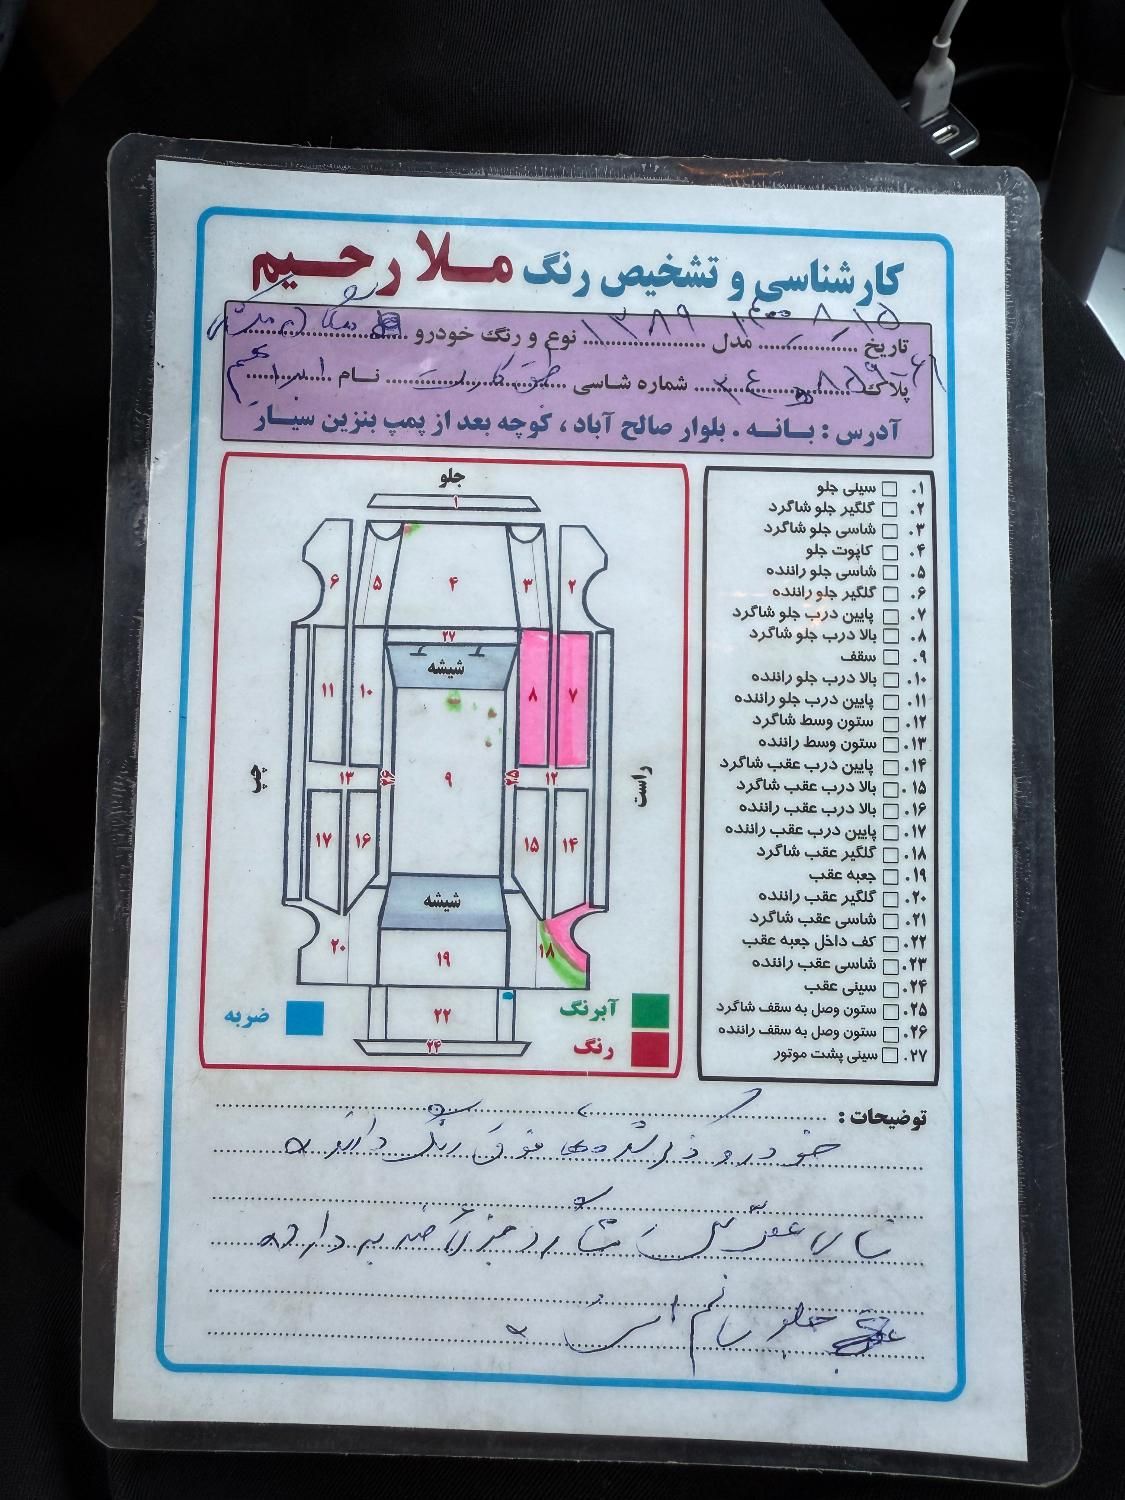 کارشناسی و تشخیص رنگ ملا رحیم
تاریخ ۱۴۰۰/۸/۱۵ مدل ۱۳۸۹ نوع و رنگ خودرو
پلاک شماره شاسی نام ابراهیم
آدرس : بانه . بلوار صالح آباد ، کوچه بعد از پمپ بنزین سیار
جلو
۱
۶ ۵ ۴ ۳ ۲
۲۷
شیشه
۱۱ ۱۰ ۸ ۷
چپ ۱۳ ۲۶ ۹ ۲۵ ۱۲ راست
۱۷ ۱۶ ۱۵ ۱۴
شیشه
۲۰ ۱۹ ۱۸
ضربه ۲۲ آبرنگ
۲۴ رنگ
۱. سینی جلو
۲. گلگیر جلو شاگرد
۳. شاسی جلو شاگرد
۴. کاپوت جلو
۵. شاسی جلو راننده
۶. گلگیر جلو راننده
۷. پایین درب جلو شاگرد
۸. بالا درب جلو شاگرد
۹. سقف
۱۰. بالا درب جلو راننده
۱۱. پایین درب جلو راننده
۱۲. ستون وسط شاگرد
۱۳. ستون وسط راننده
۱۴. پایین درب عقب شاگرد
۱۵. بالا درب عقب شاگرد
۱۶. بالا درب عقب راننده
۱۷. پایین درب عقب راننده
۱۸. گلگیر عقب شاگرد
۱۹. جعبه عقب
۲۰. گلگیر عقب راننده
۲۱. شاسی عقب شاگرد
۲۲. کف داخل جعبه عقب
۲۳. شاسی عقب راننده
۲۴. سینی عقب
۲۵. ستون وصل به سقف شاگرد
۲۶. ستون وصل به سقف راننده
۲۷. سینی پشت موتور
توضیحات :
خودرو ذکر شده فوق رنگ دارد
شاسی عقب سمت شاگرد جزئی ضربه دارد
جلو سالم است